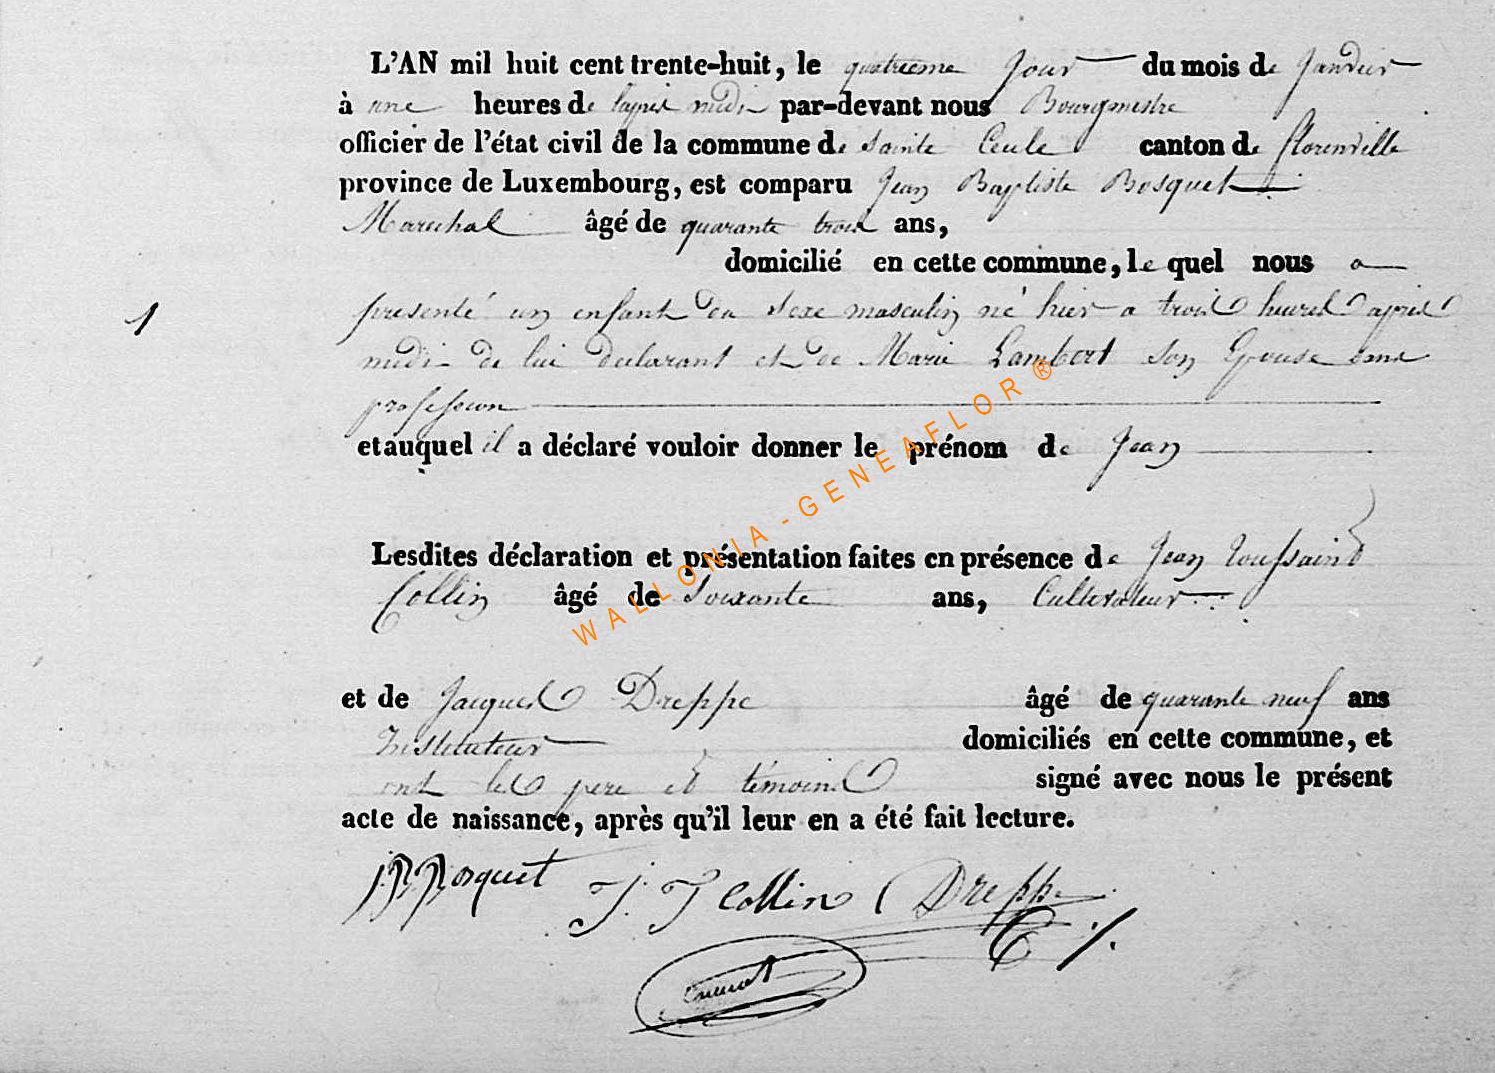 L'AN mil huit cent trente-huit, le quatrieme jour du mois de Janvier
à une heures de l'aprés midi par-devant nous Bourgmestre
officier de l'état civil de la commune de Sainte Cecile canton de florenville
province de Luxembourg, est comparu Jean Baptiste Bosquet
Marechal âgé de quarante trois ans,
domicilié en cette commune, le quel nous a
1 presenté un enfant du Sexe masculin né hier a trois heures aprés
midi de lui declarant et de Marie Lambert Son Epouse sans
profession
et auquel il a déclaré vouloir donner le prénom de Jean
Lesdites déclaration et présentation faites en présence de Jean Toussaint
Collin âgé de Soixante ans, Cultivateur
et de Jacques Dreppe âgé de quarante neuf ans
Instituteur domiciliés en cette commune, et
ont les pere et témoins signé avec nous le présent
acte de naissance, après qu'il leur en a été fait lecture.
J B Bosquet J. J Collin Dreppe
WALLONIA - GENEAFLOR ®